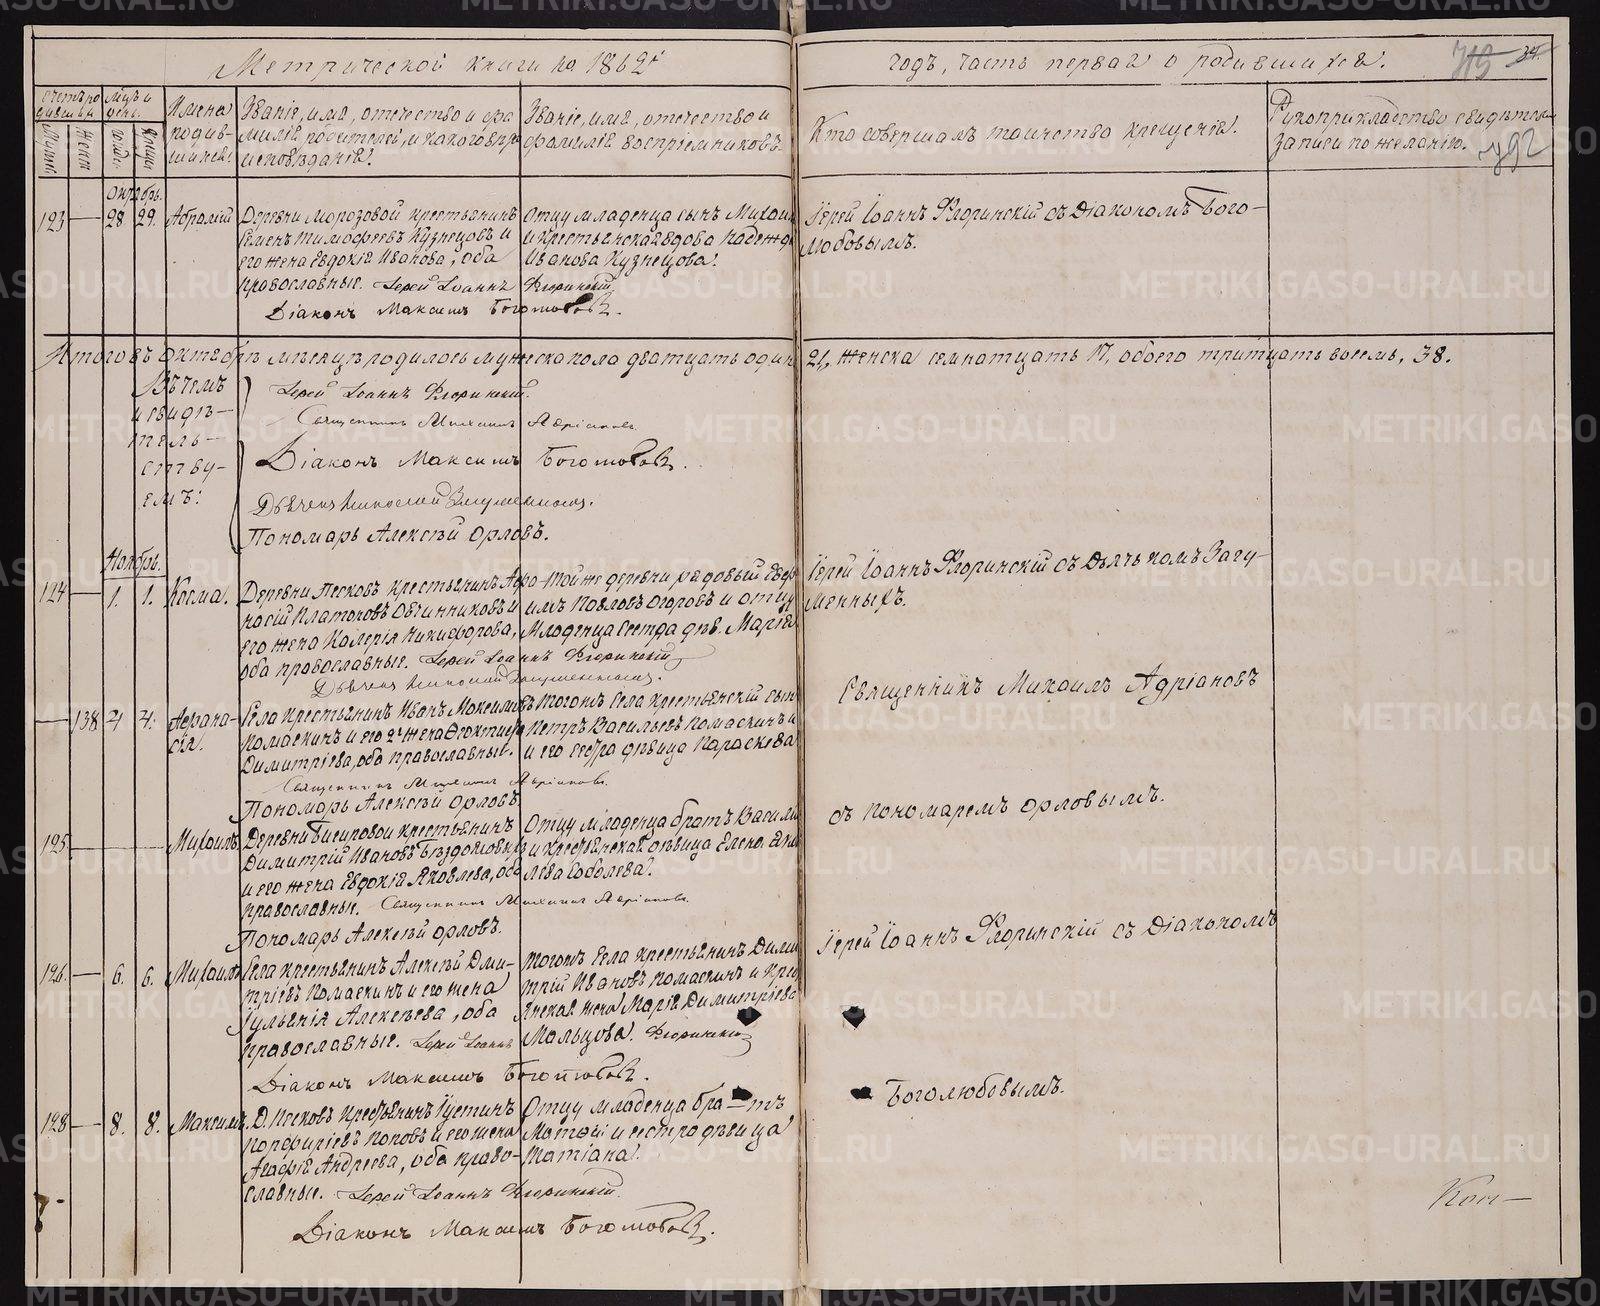 Метрической книги на 1862й
годъ, часть первая о родившихся.
Счетъ родившихся
Мужес.
Женск.
Мцъ и день.
рожден.
крещен.
Имена родившихся.
Званіе, имя, отечество и фамилія родителей, и какого вѣроисповѣданія.
Званіе, имя, отечество и фамилія воспріемниковъ.
Кто совершалъ таинство крещенія.
Рукоприкладство свидѣтелей записи по желанію.
Октябрь.
123 — 28 29. Авраамій
Деревни Морозовой крестьянинъ
Семенъ Тимофеевъ Кузнецовъ и
его жена Евдокія Иванова, оба
православные. Іерей Іоаннъ Флоринскій
Діаконъ Максимъ Боголюбовъ.
Отцу младенца сынъ Михаилъ
и крестьянская вдова Надежда
Иванова Кузнецова.
Іерей Іоаннъ Флоринскій съ Діакономъ Бого-
любовымъ.
Итого въ Октябрѣ мѣсяцѣ родилось мужеска пола дватцать одинъ
21, женска семнатцать 17, обоего тритцать восемь, 38.
Въ чемъ
и свидѣ-
тель-
ству-
емъ:
Іерей Іоаннъ Флоринскій.
Священникъ Михаилъ Адріановъ
Діаконъ Максимъ Боголюбовъ.
Дьячекъ Николай Загуменныхъ.
Пономарь Алексѣй Орловъ.
Ноябрь.
124 — 1. 1. Косма.
Деревни Песковъ крестьянинъ Афа-
насій Платоновъ Овчинниковъ и
его жена Калерія Никифорова,
оба православные. Іерей Іоаннъ Флоринскій
Дьячекъ Николай Загуменныхъ.
Той же деревни рядовый Ефи-
имъ Павловъ Огоровъ и отцу
младенца сестра дѣв. Марія
Іерей Іоаннъ Флоринскій съ Дьячкомъ Загу-
менныхъ.
— 138 4 4. Афана-
сія.
Села крестьянинъ Иванъ Максимовъ
Комаскинъ и его 2я жена Ѳеоктиста
Димитріева, оба православные.
Священникъ Михаилъ Адріановъ
Пономарь Алексѣй Орловъ
Тогожъ Села крестьянскій сынъ
Петръ Васильевъ Комаскинъ и
и его сестра дѣвица Параскева
Священникъ Михаилъ Адріановъ
съ пономаремъ Орловымъ.
125 — Михаилъ
Димитрій Ивановъ
и его жена Евдокія Яковлева, оба
православные. Священникъ Михаилъ Адріановъ
Пономарь Алексѣй Орловъ.
Отцу младенца братъ Василій
и крестьянская дѣвица Елена
Соболева.
126 — 6. 6. Михаилъ
Села крестьянинъ Алексѣй Дми-
тріевъ Комаскинъ и его жена
Іульянія Алексѣева, оба
православные. Іерей Іоаннъ Флоринскій
Діаконъ Максимъ Боголюбовъ.
Тогожъ Села крестьянинъ Дими-
трій Ивановъ Комаскинъ и кре-
янская жена Марія Димитріева
Мальцова.
Іерей Іоаннъ Флоринскій съ Діакономъ
Боголюбовымъ.
128 — 8. 8. Максимъ.
Д. Песковъ крестьянинъ Іустинъ
Порфиріевъ Поповъ и его жена
Агафія Андреева, оба право-
славные. Іерей Іоаннъ Флоринскій.
Діаконъ Максимъ Боголюбовъ.
Отцу младенца бра-тъ
Матѳій и сестра дѣвица
Татіана.
METRIKI.GASO-URAL.RU